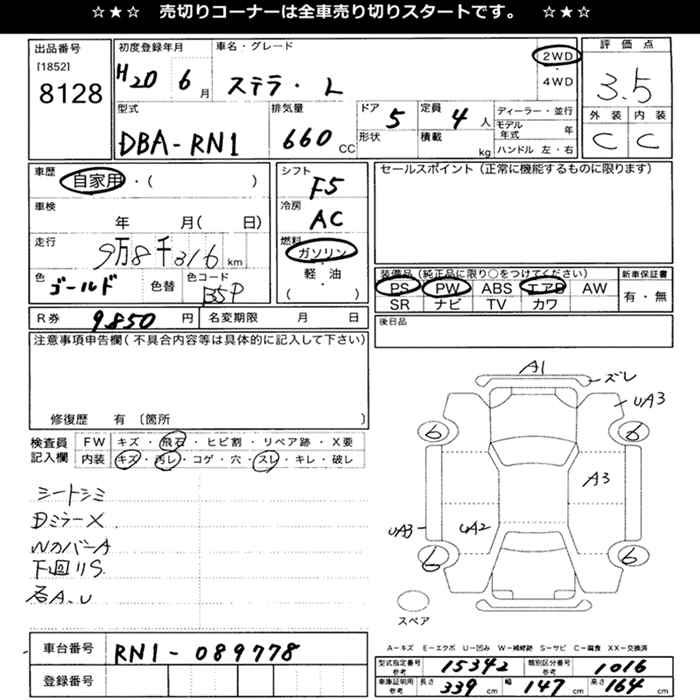 ☆★☆ 売切りコーナーは全車売り切りスタートです。 ☆★☆
出品番号 初度登録年月 車名・グレード 2WD 評価点
[1852] H20 6月 ステラ・L ・ 4WD 3.5
8128
型式 排気量 ドア 5 定員 4人 ディーラー・並行 外装 内装
DBA-RN1 660 CC 形状 積載 kg モデル年式 年 C C
ハンドル 左・右
車歴 自家用・( ) シフト F5 セールスポイント(正常に機能するものに限ります)
車検 年 月( 日) 冷房 AC
走行 9万8千316 km 燃料 ガソリン
色 ゴールド 色替 色コード B5P 軽・油 ( ) 装備品(純正品に限り○をつけてください) 新車保証書
PS PW ABS エアB AW 有・無
SR ナビ TV カワ
R券 9,850 円 名変期限 月 日 後日品
注意事項申告欄(不具合内容等は具体的に記入して下さい)
修復歴 有 〔箇所 〕
検査員記入欄 FW キズ・飛石・ヒビ割・リペア跡・X要
内装 キズ・汚レ・コゲ・穴・スレ・キレ・破レ
シートシミ
DミラーX
WカバーA
下回りS
石A、U
A1
ズレ
UA3
6 6
A3
UA3 UA2
6 6
スペア
A-キズ E-エクボ U-凹み W-補修跡 S-サビ C-腐食 XX-交換済
車台番号 RN1-089778
登録番号
型式指定番号 参考 15342 類別区分番号 参考 1016
車庫証明用 参考 長さ 339 cm 幅 147 cm 高さ 164 cm